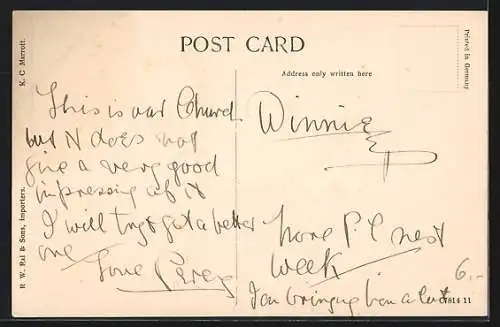 POST CARD
Address only written here
Printed in Germany
K. C Marrott.
R. W. Pal & Sons, Importers.
This is our Church
but N does not
give a very good
impressing of it
I will try & get a better
one
Love Percy
Winnie
more P. C next
week
I am bringing
6.-
07814 11